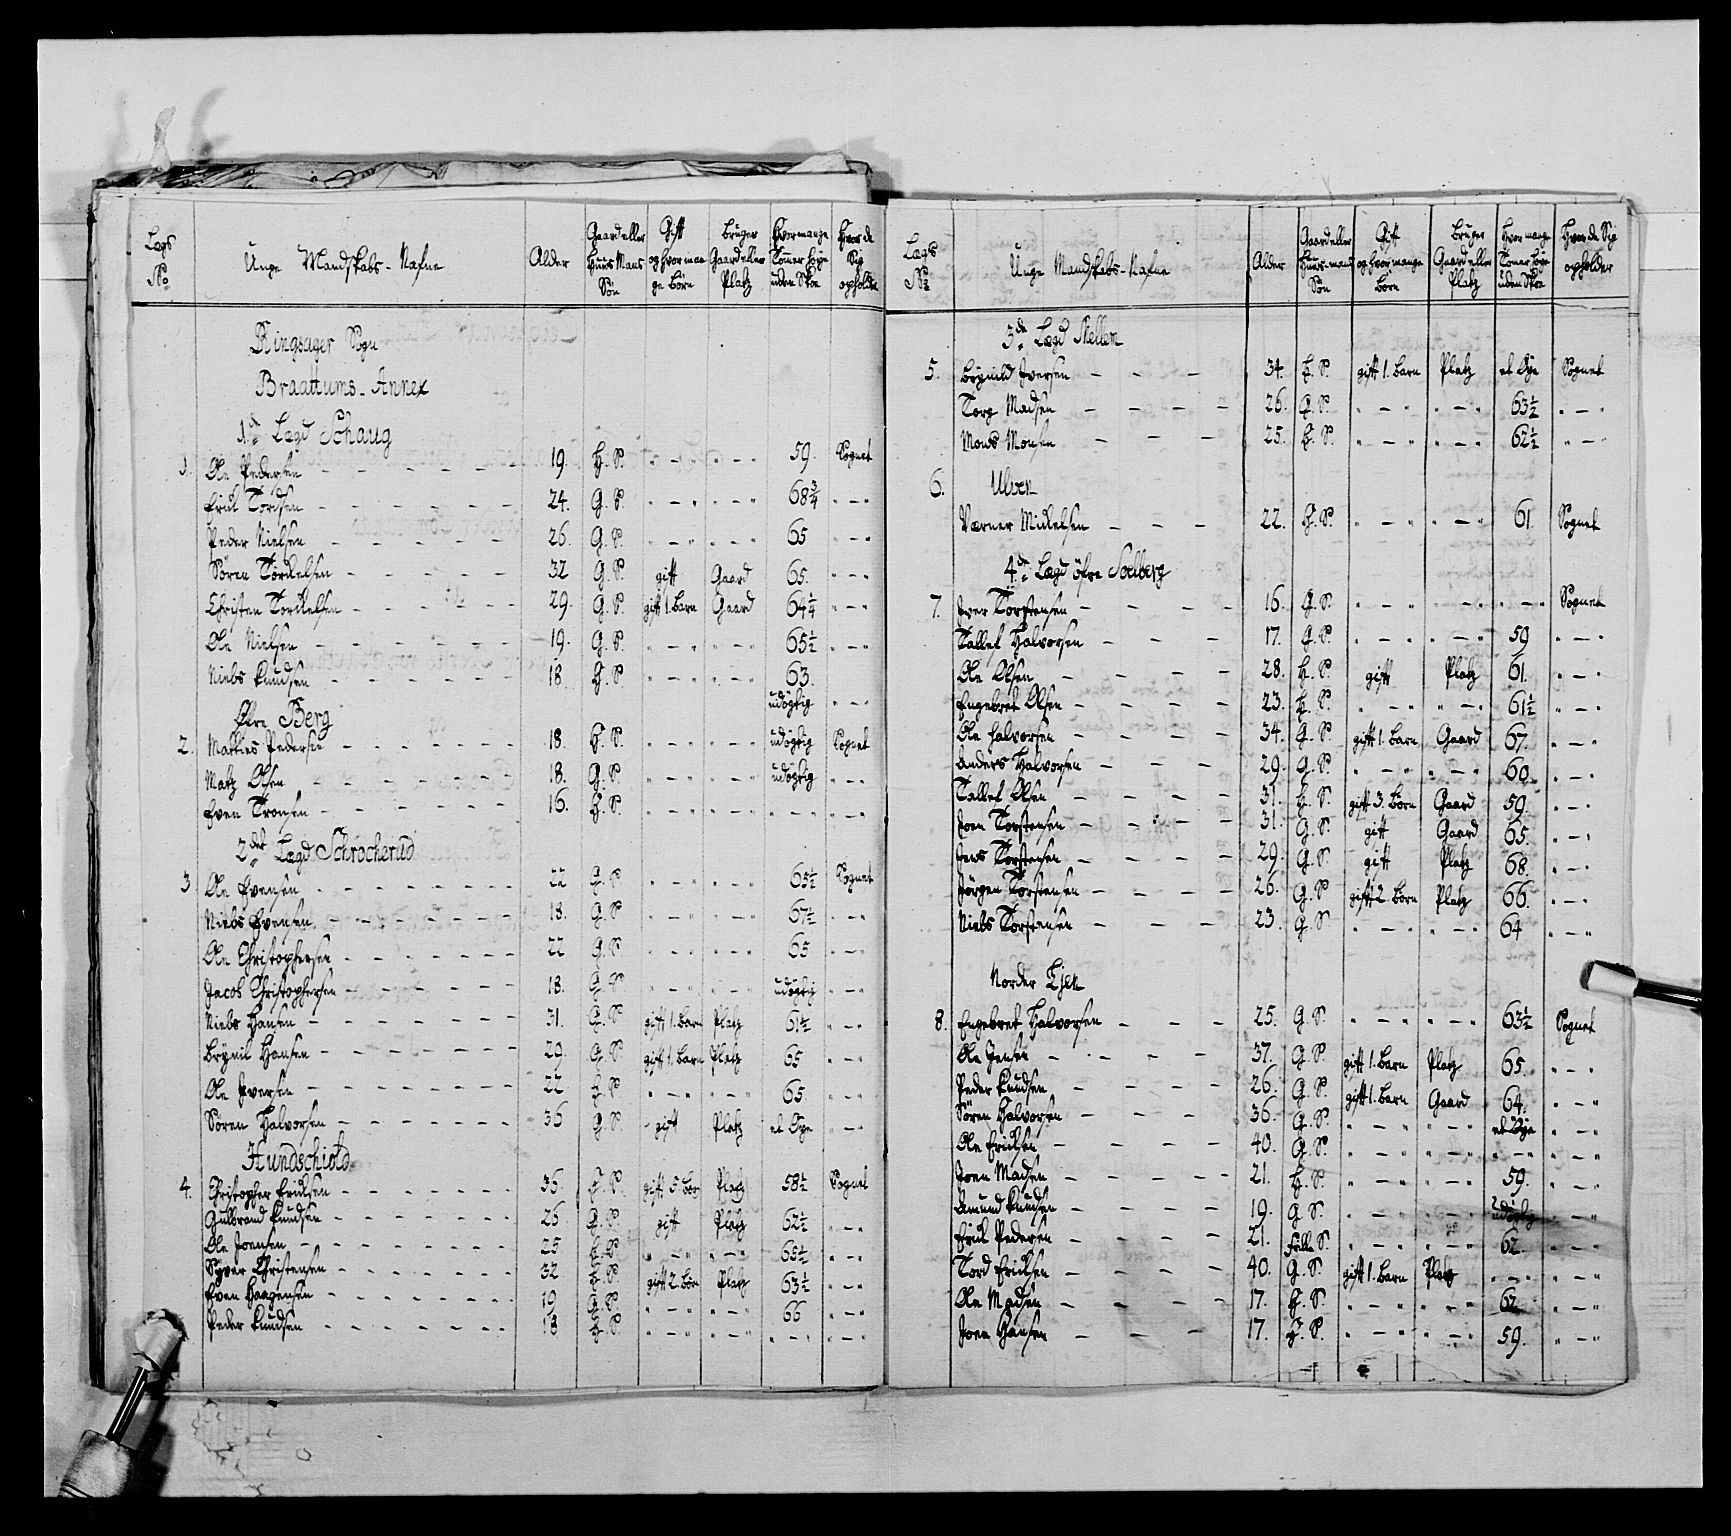 Lægs No | Unge Mandskabs-Nafne | Alder | Gaard eller Huus Mans Søn | Gift og hvor mange Børn | Bruger Gaard eller Platz | Hvor mange Tomer høye uden Skoe | Hvor de Sig opholder
Ringsager Sogn
Braattums-Annex
1de Lægd Schaug
1. Ole Pedersen 19. H. S. 59. Sognet
Erik Tordsen 24. G. S. 68 3/4
Peder Nielsen 26. G. S. 65
Sören Torkelsen 32 G. S. gift Gaard 65.
Christen Torkelsen 29. G. S. gift 1. Barn Gaard 64 1/4
Ole Nielsen 19. G. S. 65 1/2
Niels Knudsen 18. G. S. 63.
udögtig
Øfre Berg
2. Matties Pedersen 18. H. S. udögtig Sognet
Matz Olsen 18. G. S. udögtig
Even Tronsen 16. H. S.
2det Lægd Schrocherud
3 Ole Evensen 22 G. S. 65 1/2 Sognet
Niels Evensen 18. G. S. 67 1/2
Ole Christophersen 22 G. S. 65
Jacob Christophersen 18. G. S. udögtig
Niels Hansen 31. G. S. gift 1. Barn Platz 61 1/2
Brynil Hansen 29. G. S. gift 1. Barn Platz 65
Ole Iversen 22 H. S. 65
Sören Halvorsen 36 G. S. gift Platz et Øye
Hundschiold
4. Christopher Eriksen 36. H. S. gift 5. Børn Platz 58 1/2 Sognet
Gulbrand Knudsen 26 G. S. gift Platz 62 1/2
Ole Joensen 25 65 1/2
Syver Christensen 32 gift 2. Børn Platz 63 1/2
Even Haagensen 19 G. S. 66
Peder Knudsen 18
Lægs No | Unge Mandskabs-Nafne | Alder | Gaard eller Huus-mands Søn | Gift og hvor mange Børn | Bruger Gaard eller Platz | Hvor mange Tomer høye uden Skoe | Hvor de Sig opholder
3de Lægd Stellen
5. Brynild Iversen 34. H. S. gift 1. Barn Platz et Øye Sognet
Torg Madsen 26. G. S. 63 1/2
Mons Monsen 25. H. S. 62 1/2
6. Ulven
Værner Mickelsen 22. H. S. 61 Sognet
4de Lægd öfre Soelberg
7. Iver Torstensen 16. G. S. Sognet
Tallef Halvorsen 17. G. S. 59
Ole Olsen 28. H. S. gift Platz 61.
Engebret Olsen 23. H. S. 61 1/2
Ole Halvorsen 34. G. S. gift 1. Barn Gaard 67.
Anders Halvorsen 29. G. S. 60
Tallef Olsen 31. H. S. gift 3. Børn Gaard 59.
Joen Torstensen 31. G. S. gift Gaard 65.
Jens Torstensen 29. G. S. gift Platz 68.
Jörgen Torstensen 26. G. S. gift 2. Børn Platz 66.
Niels Torstensen 23. G. S. 64
Norder Ejen
8. Engebret Halvorsen 25. G. S. 63 1/2 Sognet
Ole Jensen 37. G. S. gift 1. Barn Platz 65.
Peder Knudsen 26. G. S. gift 1. Barn Gaard 64.
Sören Halvorsen 36. G. S. et Øye
Ole Ericksen 40. G. S.
Joen Madsen 21. H. S. 59.
Amund Knudsen 19. G. S. udögtig
Erik Pedersen 21. S. 62.
Tord Ericksen 40. G. S. gift 1. Barn Platz
Ole Madsen 17. H. S. 62
Joen Hansen 17. H. S. 59.